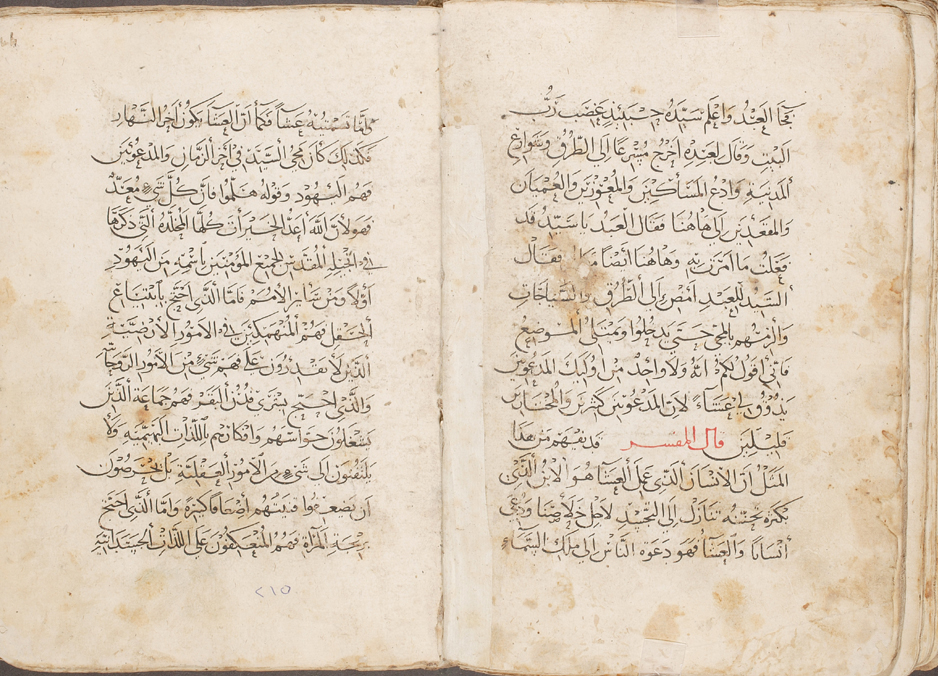 فجا العبد واعلم سيده حينئذ غضب رب
البيت وقال لعبده اخرج مسرعا الى الطرق وشوارع
المدينه وادع المساكين والمعورين والعميان
والمقعدين الى هاهنا فقال العبد يا سيد قد
فعلت ما امرت به وهاهنا ايضا مكان فقال
السيد للعبد امض الى الطرق والسياجات
والزمهم بالمجى حتى يدخلوا ويمتلى الموضع
فانى اقول لكم انه ولا واحد من اوليك المدعوين
يذوق لى عشاء لان المدعوين كثيرين والمختارين
قليلين قال المفسر قد يفهم من هذا
المثل ان الانسان الذى عمل العشا هو الابن الذى
بكثرة تحننه تنازل الى التجسد لاجل خلاصنا ودعى
انسانا والعشا فهو دعوة الناس الى ملك السماء
واما تسميته عشا فكما ان العشا يكون اخر النهار
فكذلك كان مجى السيد فى اخر الزمان والمدعوين
فهم اليهود وقوله هلموا فان كل شى معد
فهو لان الله اعد الخيرات كلها المخلده التى ذكرها
فى الجبله المقدس لجميع المومنين باسمه من اليهود
اولا ومن ساير الامم فاما الذى احتج بابتياع
الحقل فهم المنهمكين فى الامور الارضية
الذين لا يقدرون على فهم شى من الامور الروحانية
والذى احتج بشرى فدن البقر فهم جماعة الذين
يشغلون حواسهم وافكارهم باللذات البهيميه ولا
يلتفتون الى شى من الامور العقلية بل يحرصون
ان يضعفوا قنيتهم اضعافا كثيرة واما الذى احتج
بزيجة المرأة فهم المنعكفون على اللذات الجسدانيه
٢١٥